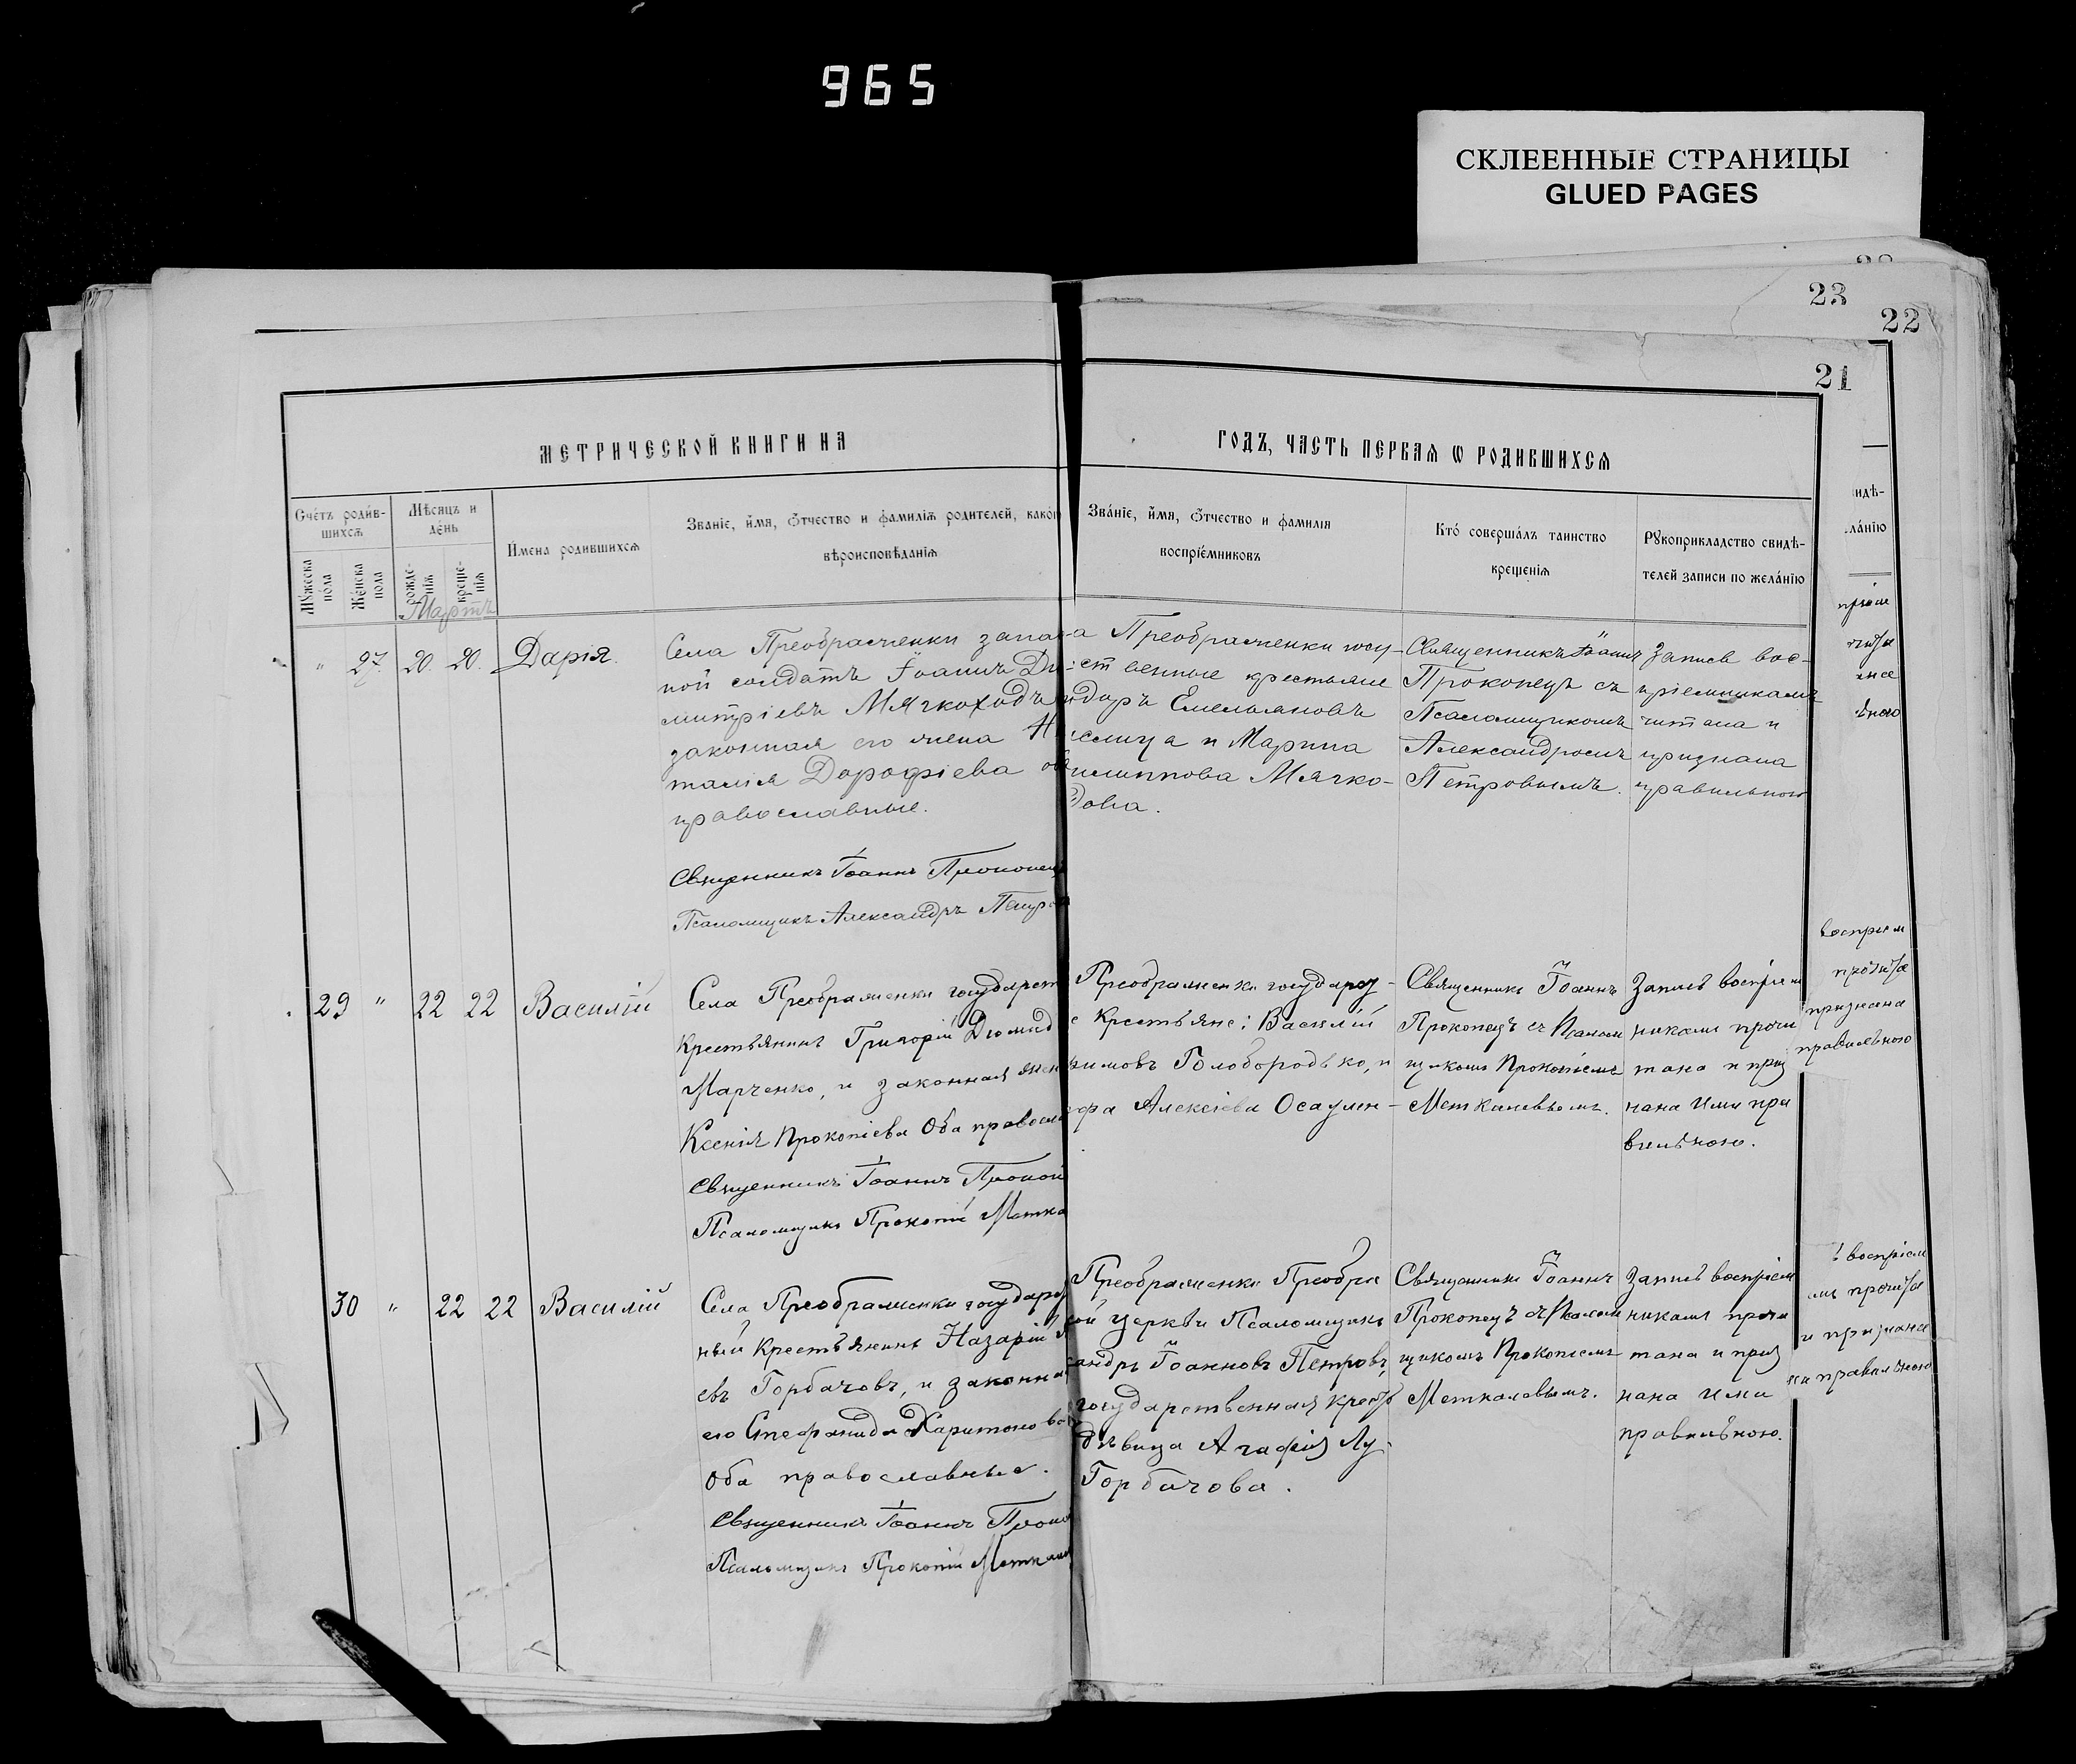 965
СКЛЕЕННЫЕ СТРАНИЦЫ
GLUED PAGES
23
22
21
МЕТРИЧЕСКОЙ КНИГИ НА
ГОДЪ, ЧАСТЬ ПЕРВАЯ Ѡ РОДИВШИХСЯ
Счётъ родив-
шихся
Мѣсяцъ и
день
Имена родившихся
Званіе, имя, отчество и фамилія родителей, како
вѣроисповѣданія
Званіе, имя, отчество и фамилія
воспріемниковъ
Кто совершалъ таинство
крещенія
Рукоприкладство свидѣ-
телей записи по желанію
Мужеска
пола
Женска
пола
рожде-
нія
креще-
нія
Мартъ
" 27. 20. 20. Дарія.
Села Преображенки запас
ной солдатъ Іоаннъ Ди
митріевъ Мягкоходъ
законная его жена На
талія Дорофіева об
православные.
Священникъ Іоаннъ Прокопец
Псаломщикъ Александръ Петро
а Преображенки госу-
ственные крестьяне
доръ Емельяновъ
слица и Марина
илиппова Мягко-
дова.
Священникъ Іоаннъ
Прокопецъ съ
Псаломщикомъ
Александромъ
Петровымъ.
Запись вос-
пріемникамъ
читана и
признана
правильною
29 " 22 22 Василій
Села Преображенки государст
Крестьянинъ Григорій Дiомид
Марченко, и законная жен
Ксенія Прокопіева Оба правосла
Священникъ Іоаннъ Прокоп
Псаломщикъ Прокопій Метка
Преображенки государст-
е Крестьяне: Василій
имовъ Голобородько, и
фа Алексіева Осаулен-
Священникъ Іоаннъ
Прокопецъ съ Псалом
щикомъ Прокопіемъ
Меткалевымъ.
Запись воспріем
никами прочи
тана и приз
нана ими пра
вильною.
30 " 22 22 Василій
Села Преображенки государс
ный Крестьянинъ Назарій
евъ Горбачовъ, и законна
его Стефанида Харитонова
Оба православные.
Священникъ Іоаннъ Проко
Псаломщикъ Прокопій Меткал
Преображенки Преобра
ой церкви Псаломщикъ
андръ Іоанновъ Петровъ,
государственная крест
дѣвица Агафія Лу-
Горбачова.
Священникъ Іоаннъ
Прокопецъ съ Псалом
щикомъ Прокопіемъ
Меткалевымъ.
Запись воспріем
никами прочи
тана и приз
нана ими
правильною.
идѣ-
ланію
воспріем
прочита
признана
правильною
воспріем
ми прочита
и признана
ми правильною